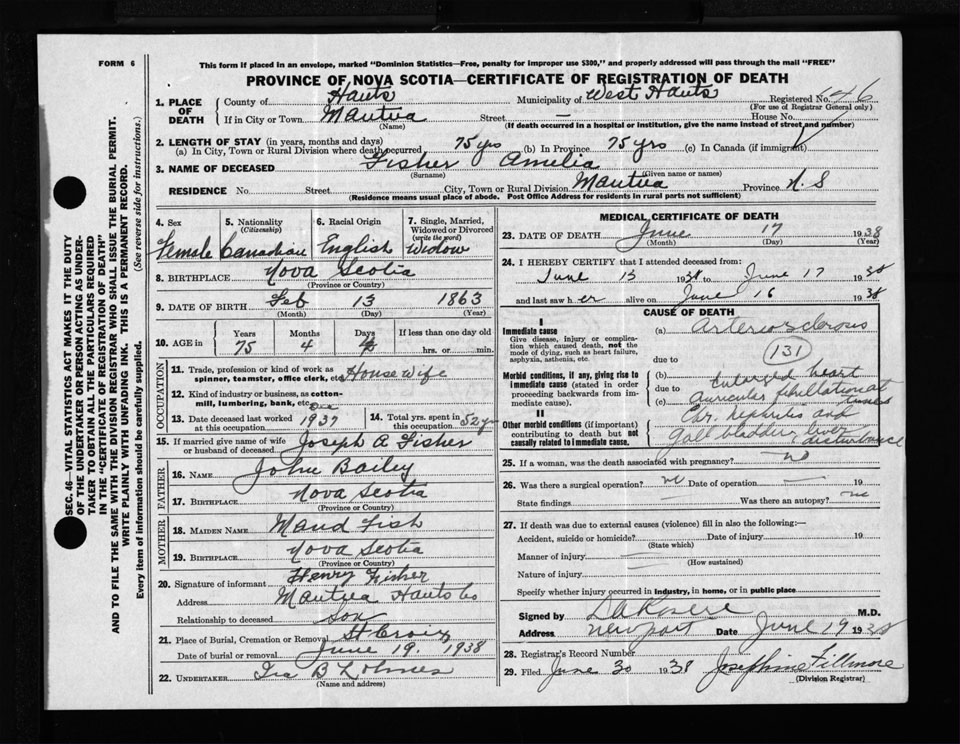 FORM 6
This form if placed in an envelope, marked "Dominion Statistics—Free, penalty for improper use $300," and properly addressed will pass through the mail "FREE"
PROVINCE OF NOVA SCOTIA—CERTIFICATE OF REGISTRATION OF DEATH
1. PLACE OF DEATH
County of Hants Municipality of West Hants Registered No. 146
(For use of Registrar General only)
If in City or Town Mantua Street — House No.
(Name) (If death occurred in a hospital or institution, give the name instead of street and number)
2. LENGTH OF STAY (in years, months and days)
(a) In City, Town or Rural Division where death occurred 75 yrs (b) In Province 75 yrs (c) In Canada (if immigrant)
3. NAME OF DECEASED Fisher Amelia
(Surname) (Given name or names)
RESIDENCE No. Street City, Town or Rural Division Mantua Province N.S
(Residence means usual place of abode. Post Office Address for residents in rural parts not sufficient)
4. Sex Female
5. Nationality (Citizenship) Canadian
6. Racial Origin English
7. Single, Married, Widowed or Divorced (write the word) Widow
8. BIRTHPLACE Nova Scotia
(Province or Country)
9. DATE OF BIRTH Feb 13 1863
(Month) (Day) (Year)
10. AGE in Years Months Days If less than one day old
75 4 hrs. or min.
OCCUPATION
11. Trade, profession or kind of work as spinner, teamster, office clerk, etc. House Wife
12. Kind of industry or business, as cotton-mill, lumbering, bank, etc.
13. Date deceased last worked at this occupation Dec 1937
14. Total yrs. spent in this occupation 52 yrs
15. If married give name of wife or husband of deceased Joseph A Fisher
FATHER
16. NAME John Bailey
17. BIRTHPLACE Nova Scotia
(Province or Country)
MOTHER
18. MAIDEN NAME Maud Fish
19. BIRTHPLACE Nova Scotia
(Province or Country)
20. Signature of informant Henry Fisher
Address Mantua Hants Co
Relationship to deceased Son
21. Place of Burial, Cremation or Removal St Croix
Date of burial or removal June 19, 1938
22. UNDERTAKER Ira B
(Name and address)
MEDICAL CERTIFICATE OF DEATH
23. DATE OF DEATH June 17 1938
(Month) (Day) (Year)
24. I HEREBY CERTIFY that I attended deceased from:
June 15 1938 to June 17 1938
and last saw her alive on June 16 1938
CAUSE OF DEATH
I
Immediate cause
Give disease, injury or complication which caused death, not the mode of dying, such as heart failure, asphyxia, asthenia, etc.
(a) Arteriosclerosis
due to (131)
Morbid conditions, if any, giving rise to immediate cause (stated in order proceeding backwards from immediate cause).
(b) Enlarged heart
due to
(c) auricular fibrillation at times
II
Other morbid conditions (if important) contributing to death but not causally related to immediate cause.
Chr. nephritis and
Gall bladder, liver disturbance
25. If a woman, was the death associated with pregnancy? no
26. Was there a surgical operation? no Date of operation — 19
State findings — Was there an autopsy? no
27. If death was due to external causes (violence) fill in also the following:—
Accident, suicide or homicide? Date of injury 19
(State which)
Manner of injury
(How sustained)
Nature of injury
Specify whether injury occurred in industry, in home, or in public place
Signed by M.D.
Address Newport Date June 19 1938
28. Registrar's Record Number
29. Filed June 30 1938 Josephine Fillmore
(Division Registrar)
SEC. 46—VITAL STATISTICS ACT MAKES IT THE DUTY
OF THE UNDERTAKER OR PERSON ACTING AS UNDER-
TAKER TO OBTAIN ALL THE PARTICULARS REQUIRED
IN THE "CERTIFICATE OF REGISTRATION OF DEATH"
AND TO FILE THE SAME WITH THE DIVISION REGISTRAR WHO SHALL ISSUE THE BURIAL PERMIT.
WRITE PLAINLY WITH UNFADING INK. THIS IS A PERMANENT RECORD.
Every item of information should be carefully supplied. (See reverse side for instructions.)